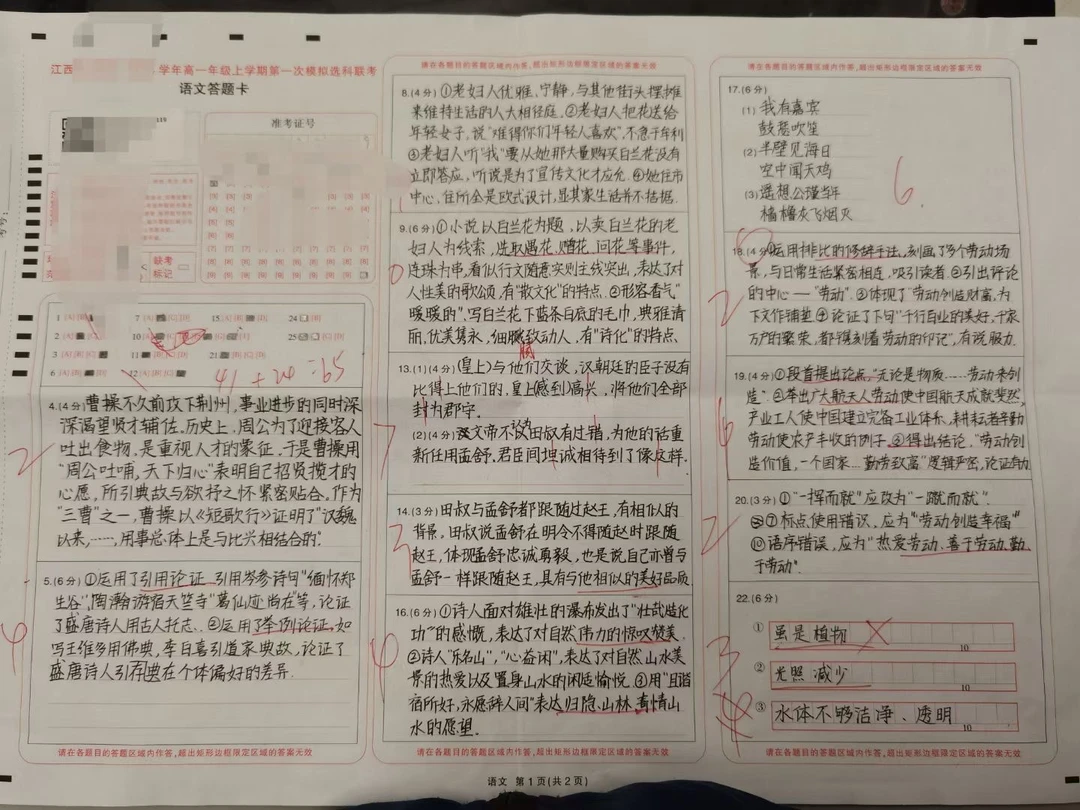 江西
学年高一年级上学期第一次模拟选科联考
语文答题卡
准考证号
缺考
标记
41+24=65
4.(4分)曹操不久前攻下荆州,事业进步的同时深
深渴望贤才辅佐.历史上,周公为了迎接客人
吐出食物,是重视人才的象征.于是曹操用
“周公吐哺,天下归心”表明自己招贤揽才的
心愿,所引典故与欲抒之怀紧密贴合。作为
“三曹”之一,曹操以《短歌行》证明了“汉魏
以来,……,用事总体上是与比兴相结合的”.
2
5.(6分)①运用了引用论证.引用岑参诗句“缅怀郑
生谷”,陶瀚游宿天竺寺“葛仙迹尚在”等,论证
了盛唐诗人用古人托志.②运用了举例论证.如
写王维多用佛典,李白喜引道家典故,论证了
盛唐诗人引用典在个体偏好的差异.
4
请在各题目的答题区域内作答,超出矩形边框限定区域的答案无效
请在各题目的答题区域内作答,超出矩形边框限定区域的答案无效
8.(4分)①老妇人优雅、宁静,与其他街头摆摊
来维持生活的人大相径庭.②老妇人把花送给
年轻女子,说“难得你们年轻人喜欢”,不急于牟利
③老妇人听“我”要从她那大量购买白兰花没有
立即答应,听说是为了宣传文化才应允.④她住市
中心,住所全是欧式设计,显其家生活并不拮据.
9.(6分)①小说以白兰花为题,以卖白兰花的老
妇人为线索,选取遇花、赠花、回花等事件,
连珠为串,看似行文随意实则主线突出,表达了对
人性美的歌颂,有“散文化”的特点.②形容香气“
暖暖的”,写白兰花下蓝条白底的毛巾,典雅清
丽,优美隽永,细腻致动人,有“诗化”的特点.
13.(1)(4分)(皇上)与他们交谈,汉朝廷的臣子没有
比得上他们的,皇上(感到)高兴,将他们全部
封为郡守.
(2)(4分)汉文帝不认田叔有过错,为他的话重
新任用孟舒.君臣间坦诚相待到了像这样.
7
14.(3分)田叔与孟舒都跟随过赵王,有相似的
背景,田叔说孟舒在明令不得随赵时跟随
赵王,体现孟舒忠诚勇毅,也是说自己亦曾与
孟舒一样跟随赵王,具有与他相似的美好品质
3
16.(6分)①诗人面对雄壮的瀑布发出了“壮哉造化
功”的感慨,表达了对自然伟力的惊叹赞美.
②诗人“乐名山”,“心益闲”,表达了对自然山水美
景的热爱以及置身山水的闲适愉悦.③用“且谐
宿所好,永愿辞人间”表达归隐山林、寄情山
水的愿望.
4
请在各题目的答题区域内作答,超出矩形边框限定区域的答案无效
语文 第1页(共2页)
请在各题目的答题区域内作答,超出矩形边框限定区域的答案无效
17.(6分)
(1)我有嘉宾
鼓瑟吹笙
(2)半壁见海日
空中闻天鸡
(3)遥想公瑾当年
樯橹灰飞烟灭
6
18.(4分)①运用排比的修辞手法,刻画了多个劳动场
景,与日常生活紧密相连,吸引读者.②引出评论
的中心——“劳动”.③体现了“劳动创造财富,为
下文作铺垫.④论证了下句“千行百业的美好,千家
万户的繁荣,都镌刻着劳动的印记”,有说服力.
2
19.(4分)①段首提出论点,“无论是物质……劳动来创
造”.②举出广大航天人劳动使中国航天成就斐然,
产业工人使中国建立完备工业体系,耕耘者辛勤
劳动使农产丰收的例子.③得出结论,“劳动创
造价值,一个国家…勤劳致富”逻辑严密,论证有力
20.(3分)①“一挥而就”应改为“一蹴而就”.
⑦标点使用错误,应为“劳动创造幸福”
⑩语序错误,应为“热爱劳动、善于劳动、勤
于劳动”.
2
22.(6分)
①虽是植物
②光照减少
③水体不够洁净、透明
请在各题目的答题区域内作答,超出矩形边框限定区域的答案无效